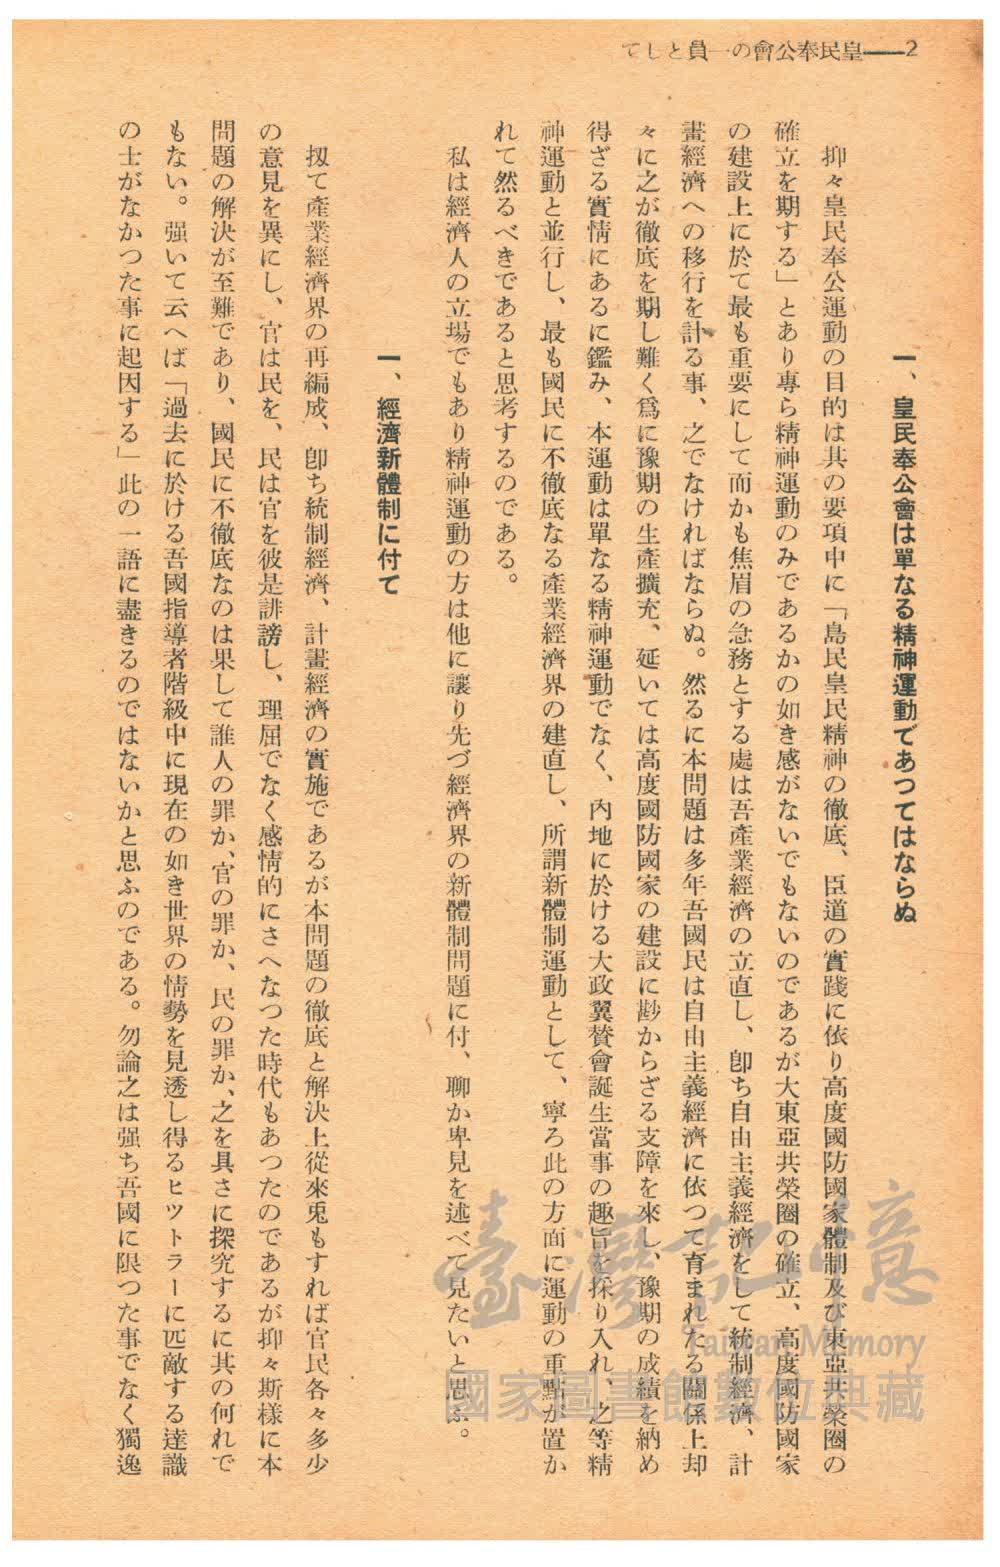 2——皇民奉公會の一員として
一、皇民奉公會は單なる精神運動であつてはならぬ
抑々皇民奉公運動の目的は其の要項中に「島民皇民精神の徹底、臣道の實踐に依り高度國防國家體制及び東亞共榮圈の
確立を期する」とあり專ら精神運動のみであるかの如き感がないでもないのであるが大東亞共榮圈の確立、高度國防國家
の建設上に於て最も重要にして而かも焦眉の急務とする處は吾產業經濟の立直し、卽ち自由主義經濟をして統制經濟、計
畫經濟への移行を計る事、之でなければならぬ。然るに本問題は多年吾國民は自由主義經濟に依つて育まれたる關係上却
々に之が徹底を期し難く爲に豫期の生產擴充、延いては高度國防國家の建設に尠からざる支障を來し、豫期の成績を納め
得ざる實情にあるに鑑み、本運動は單なる精神運動でなく、內地に於ける大政翼贊會誕生當事の趣旨を採り入れ、之等精
神運動と並行し、最も國民に不徹底なる產業經濟界の建直し、所謂新體制運動として、寧ろ此の方面に運動の重點が置か
れて然るべきであると思考するのである。
私は經濟人の立場でもあり精神運動の方は他に讓り先づ經濟界の新體制問題に付、聊か卑見を述べて見たいと思ふ。
一、經濟新體制に付て
扨て產業經濟界の再編成、卽ち統制經濟、計畫經濟の實施であるが本問題の徹底と解決上從來兎もすれば官民各々多少
の意見を異にし、官は民を、民は官を彼是誹謗し、理屈でなく感情的にさへなつた時代もあつたのであるが抑々斯樣に本
問題の解決が至難であり、國民に不徹底なのは果して誰人の罪か、官の罪か、民の罪か、之を具さに探究するに其の何れで
もない。强いて云へば「過去に於ける吾國指導者階級中に現在の如き世界の情勢を見透し得るヒツトラーに匹敵する達識
の士がなかつた事に起因する」此の一語に盡きるのではないかと思ふのである。勿論之は强ち吾國に限つた事でなく獨逸
臺灣記憶
Taiwan Memory
國家圖書館數位典藏